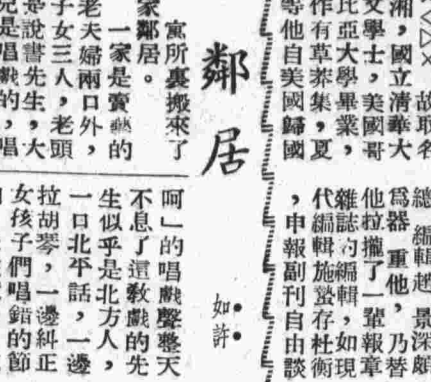 ▽△×　故取名
湘，國立清華大
文學士，美國哥
比亞大學畢業，
作有草莽集，夏
等他自美國歸國
總　編輯趙　景深頗
爲器　重他，乃替
他拉攏了一輩報章
雜誌的編輯，如現
代編輯施蟄存杜衡
，申報副刊自由談
鄰居
如許
寓所裏搬來了
家鄰居。
一家是賣藝的
老夫婦兩口外，
子女三人，老頭
是說書先生，大
兒是唱戲的，唱
呵」的唱戲聲整天
不息了這敎戲的先
生似乎是北方人，
一口北平話，一邊
拉胡琴，一邊糾正
女孩子們唱錯的節